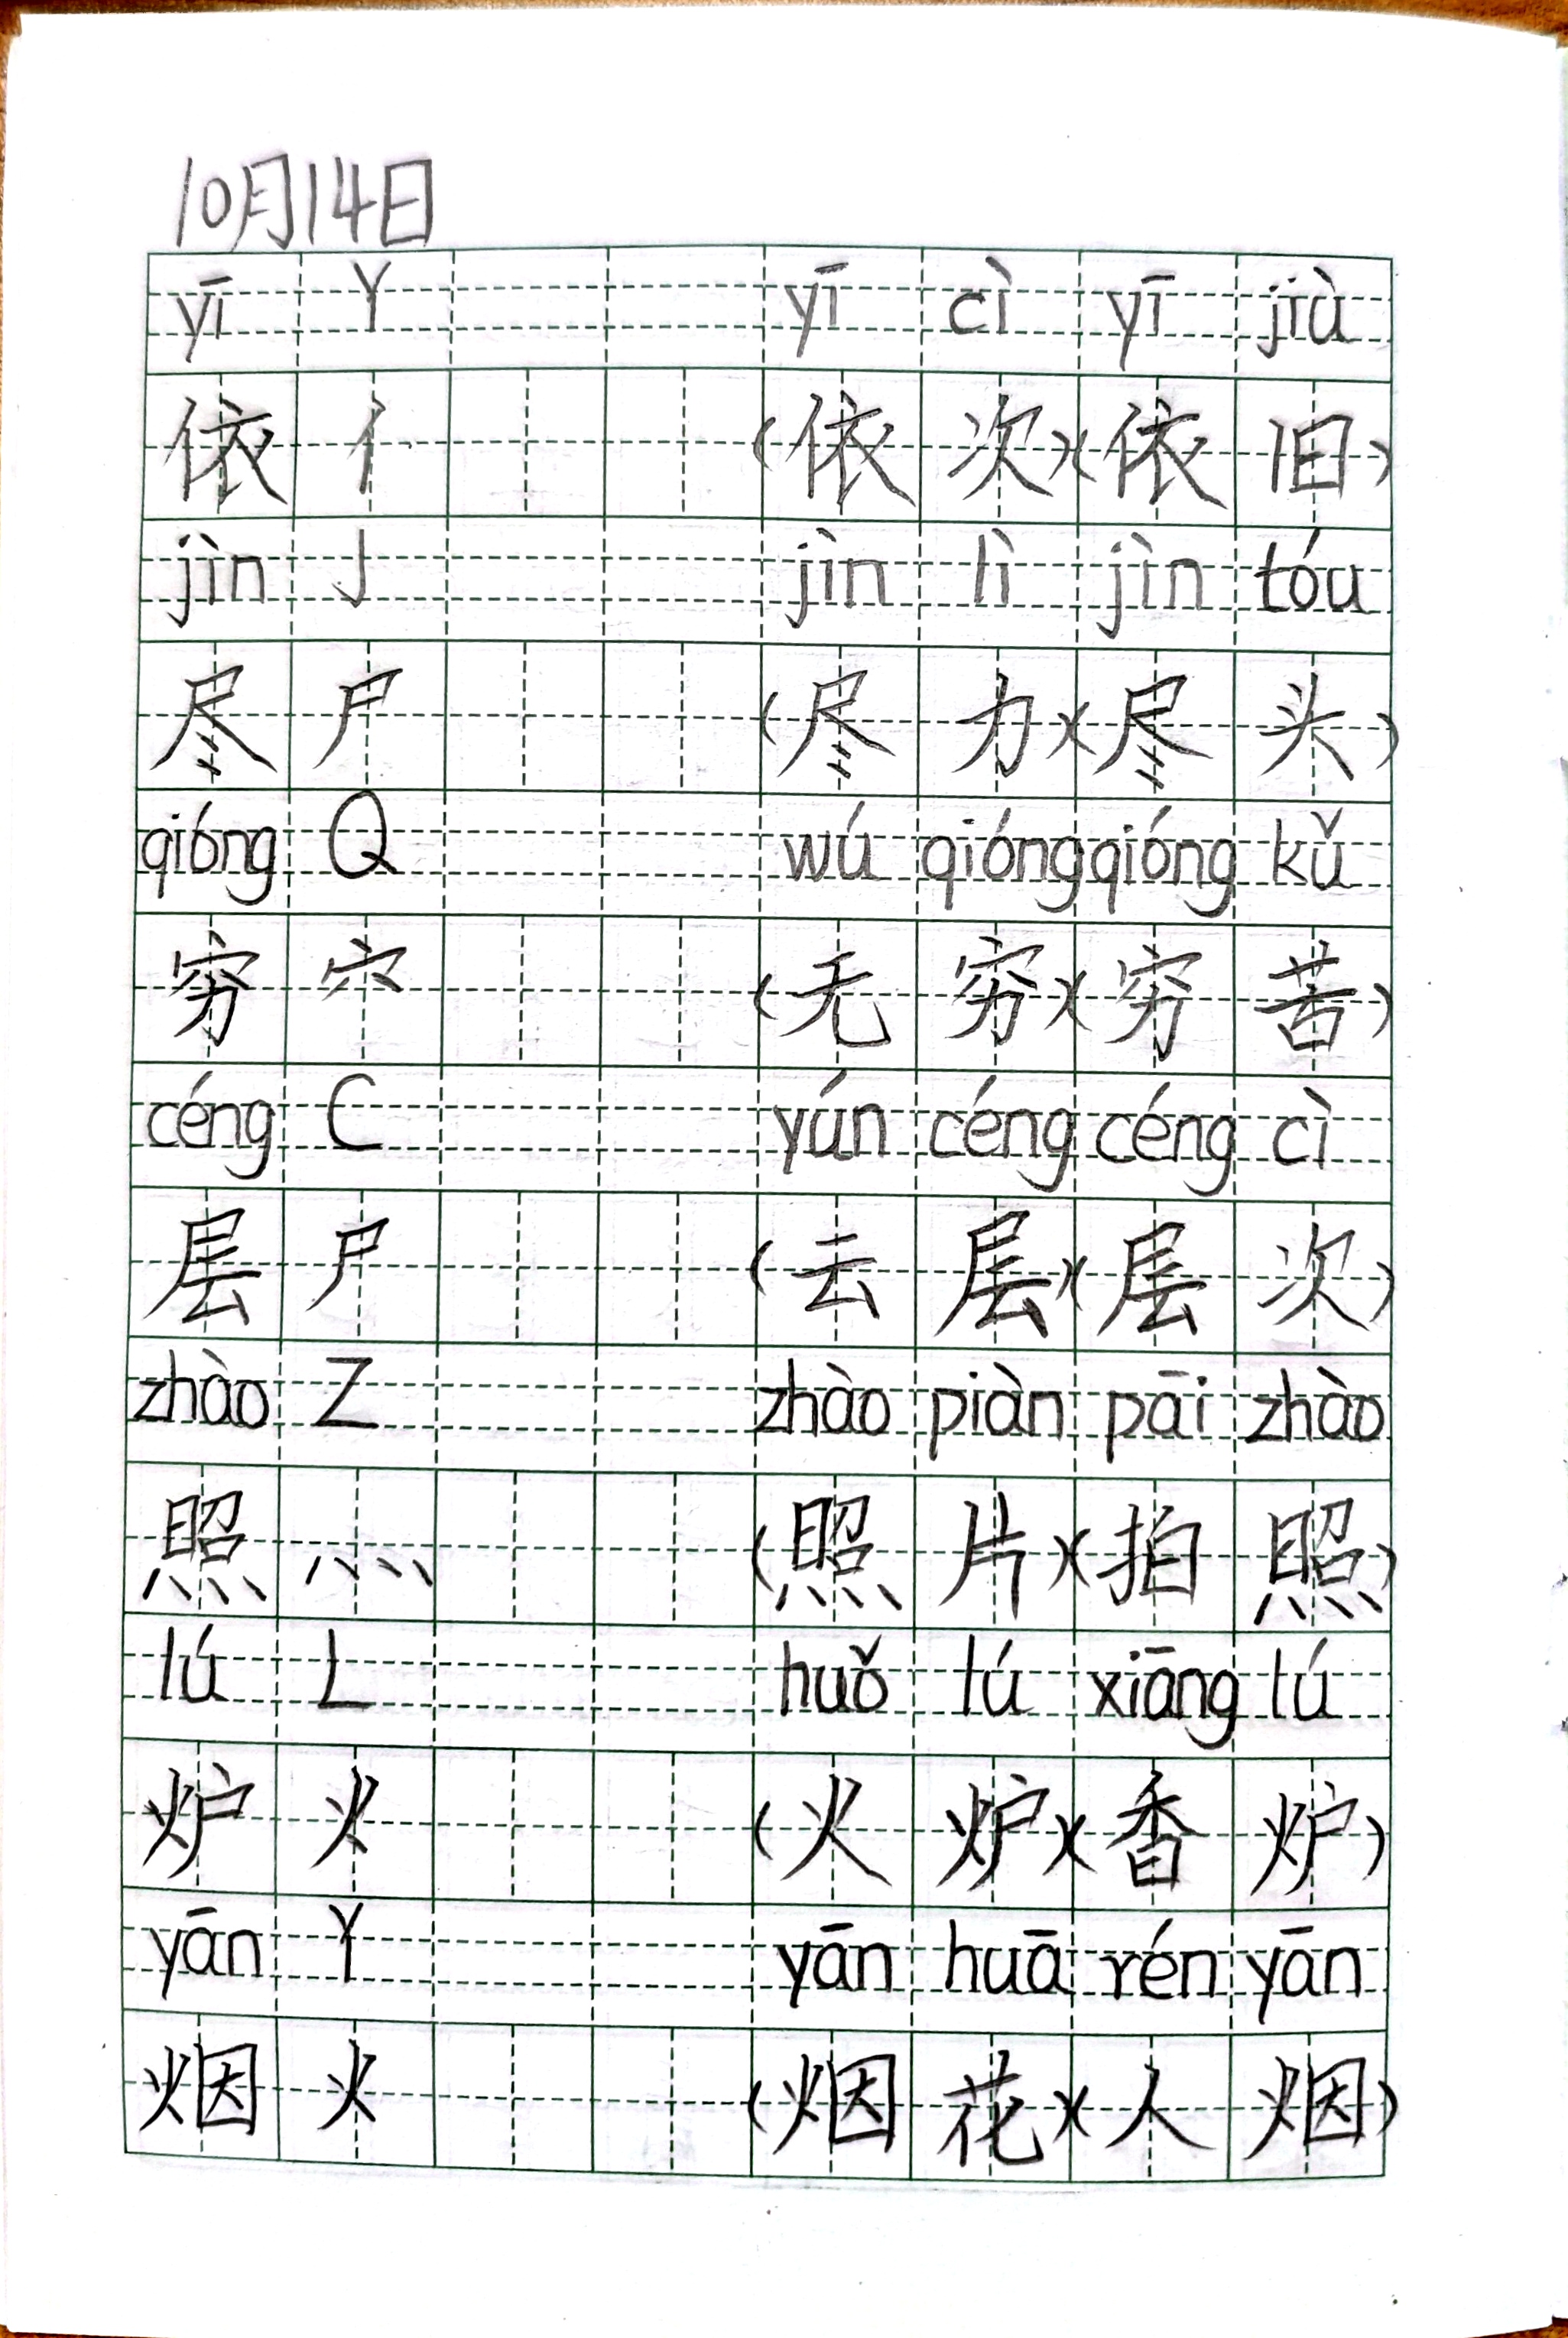 10月14日
yī Y yī cì yī jiù
依 亻 (依次)(依旧)
jìn J jìn lì jìn tóu
尽 尸 (尽力)(尽头)
qióng Q wú qióng qióng kǔ
穷 穴 (无穷)(穷苦)
céng C yún céng céng cì
层 尸 (云层)(层次)
zhào Z zhào piàn pāi zhào
照 灬 (照片)(拍照)
lú L huǒ lú xiāng lú
炉 火 (火炉)(香炉)
yān Y yān huā rén yān
烟 火 (烟花)(人烟)